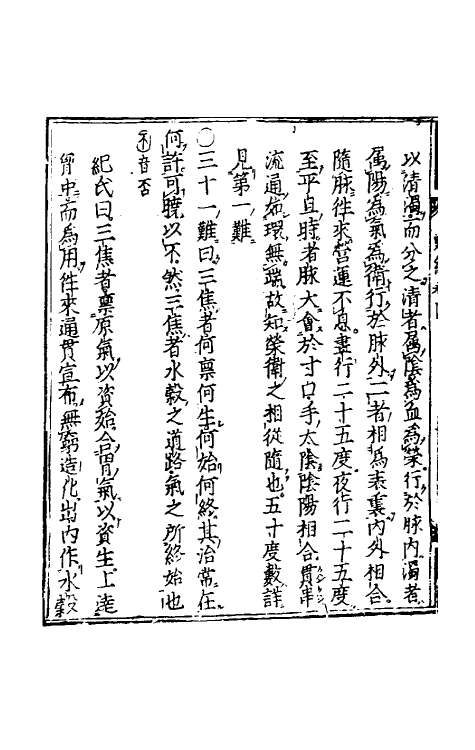 以清濁而分之清者属陰為血為榮行於脉内濁者
属陽為氣為衛行於脉外二者相為表裏内外相合
隨脉徃來營運不息晝行二十五度夜行二十五度
至平旦時者脉大會於寸口手太陰陰陽相合貫串
流通如環無端故知榮衛之相從隨也五十度數詳
見第一難
○三十一難曰三焦者何禀何生何始何終其治常在
何許可曉以不然三焦者水穀之道路氣之所終始也
不音否
紀氏曰三焦者禀原氣以資始合胃氣以資生上達
胷中而為用徃來通貫宣布無窮造化出内作水穀